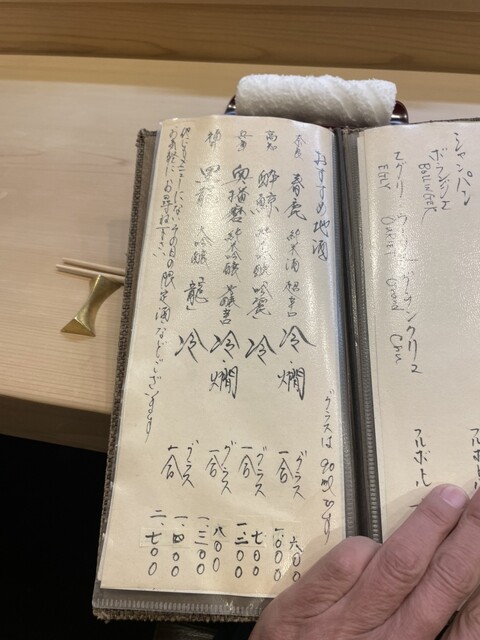 シャンパン
ボランジェ
BOLLINGER
エグリ・ウーリエ グランクリュ
EGLY OURIET Grand Cru
フルボトル
フルボトル
おすすめ地酒
グラスは90㎖です
奈良 春鹿 純米酒 超辛口 冷・燗 グラス 六〇〇
一合 一、〇〇〇
高知 酔鯨 純米吟醸 吟麗 冷 グラス 七〇〇
一合 一、二〇〇
兵庫 奥播磨 純米吟醸 芳醇超辛口 冷・燗 グラス 八〇〇
一合 一、三〇〇
福井 黒龍 大吟醸 「龍」 冷 グラス 一、四〇〇
一合 二、七〇〇
他にもメニューにないその日の限定酒などございます
お気軽にお尋ね下さい。